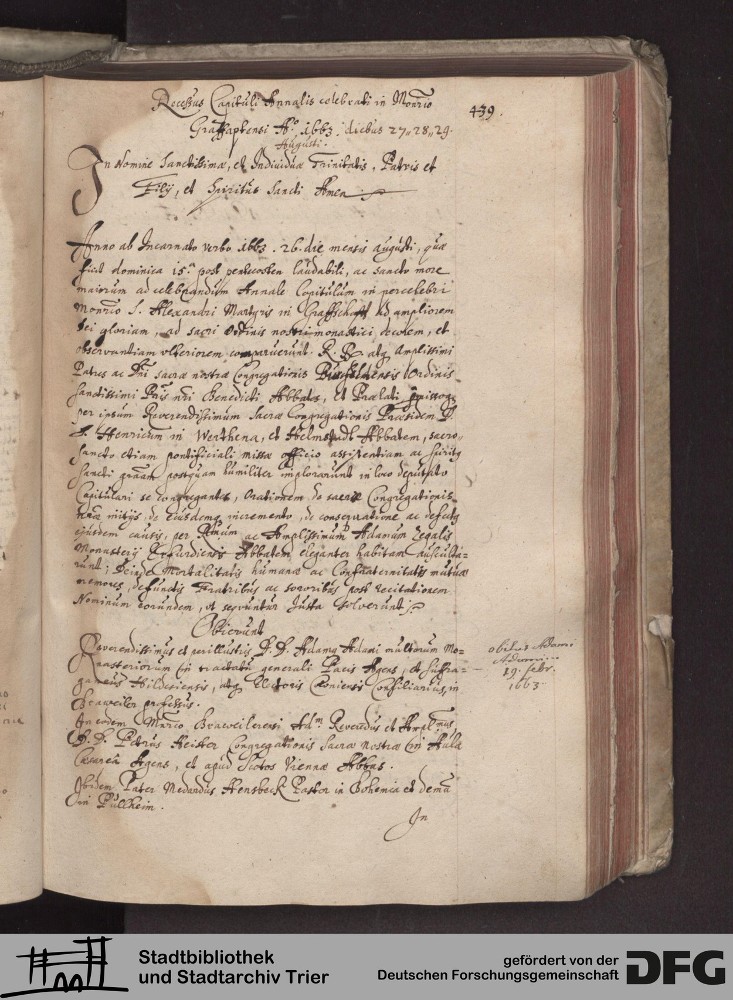 Recessus Capituli Annalis celebrati in Monrio
439.
Graffsaphensi Aº. 1663. diebus 27., 28., 29.
Augusti.
In Nomine Sanctissimæ, et Individuæ Trinitatis, Patris et
Filij, et Spiritus Sancti Amen
Anno ab Incarnato verbo 1663. 26. die mensis augusti, quæ
fuit dominica 15.ª post pentecosten laudabili, ac sancto more
maiorum ad celebrandum Annale Capitulum in percelebri
Monrio S. Alexandri Martyris in Graffschafft ad ampliorem
Dei gloriam, ad sacri Ordinis nostri monastici decorem, et
observantiam ulteriorem comparuerunt R. R. atq amplissimi
Patres ac Dni sacræ nostræ Congregationis Bursfeldensis Ordinis
sanctissimi Pris nri Benedicti Abbates, et Prælati
per ipsum Reverendissimum Sacræ Congregationis Præsidem D.
D. Henricum in Werthena, et Helmstadt Abbatem, sacro-
sancto etiam pontificiali missæ officio assistentiam ac spiritus
sancti gratiam postquam humiliter implorarunt in loco deputato
Capitulari se congregantes, Orationem de sacræ Congregationis
initijs, de eiusdemq incremento, de conservatione ac defectus
eiusdem causis, per Rmum ac Amplissimum Adaorum Regalis
Monasterij Erfurdiensis Abbatem eleganter habitam auscultâ-
runt; Deinde Mortalitatis humanæ ac Confraternitatis mutuæ
memores, defunctis Fratribus ac sororibus post recitationem
Nominum eorundem, ut sequuntur Justa solverunt
Obierunt
Reverendissimus et perillustris D. D. Adamus Adami multorum Mo-
nasteriorum in tractatu generali Pacis Agens, et Suffra-
ganeus Hildesiensis, atq Electoris Coloniensis Consiliarius, in
Braweiler professus.
obitus Adami
Adami
19. febr.
1663
In eodem Mnrio Braweilerensi Adm. Revendus et Amplmus
D. D. Petrus Heister Congregationis Sacræ nostræ in Aula
Cæsareâ Agens, et apud Scotos Viennæ Abbas.
Ibidem Pater Medardus Hensbeck Pastor in Bohemia et demũ
in Pullheim.
In
Stadtbibliothek
und Stadtarchiv Trier
gefördert von der
Deutschen Forschungsgemeinschaft
DFG